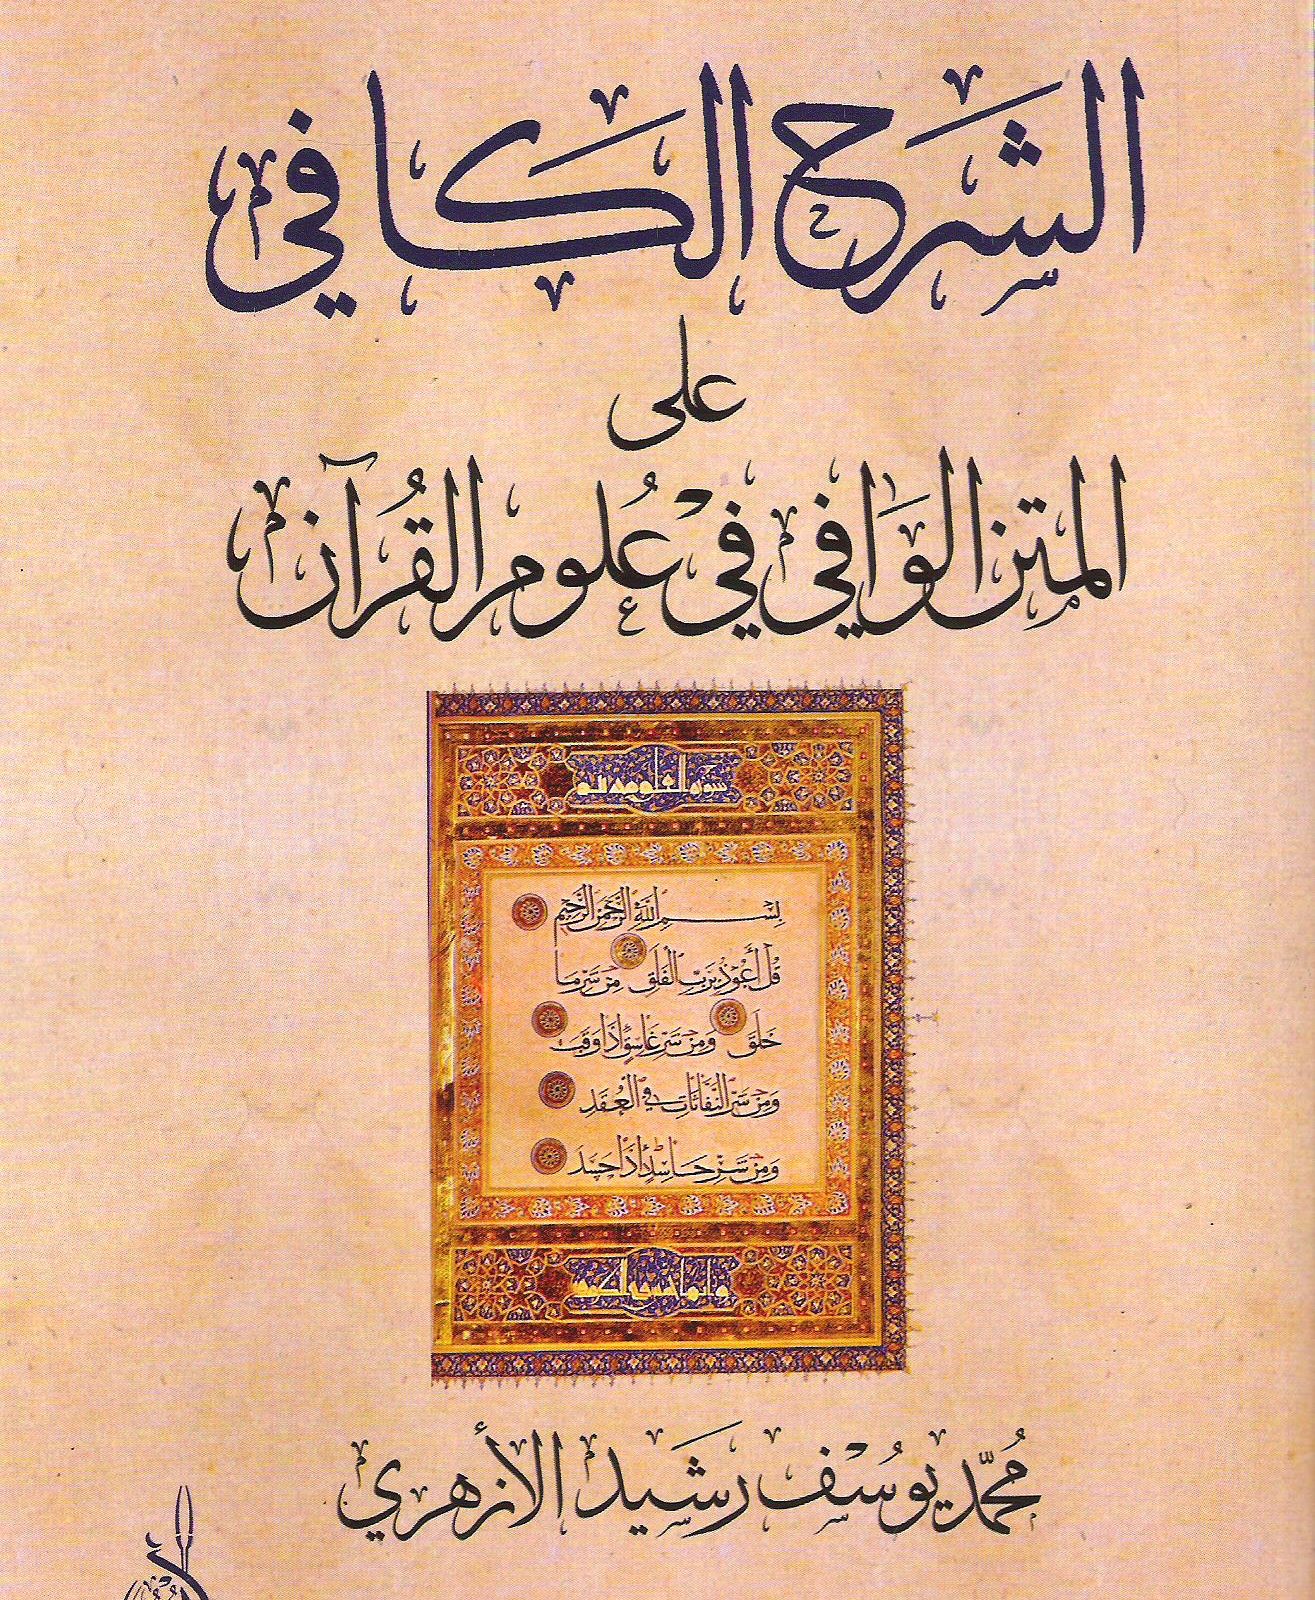 الشرح الكافي
على
المتن الوافي في علوم القرآن
بسم الله الرحمن الرحيم
قل أعوذ برب الفلق من شر ما
خلق ومن شر غاسق إذا وقب
ومن شر النفاثات في العقد
ومن شر حاسد إذا حسد
محمد يوسف رشيد الأزهري